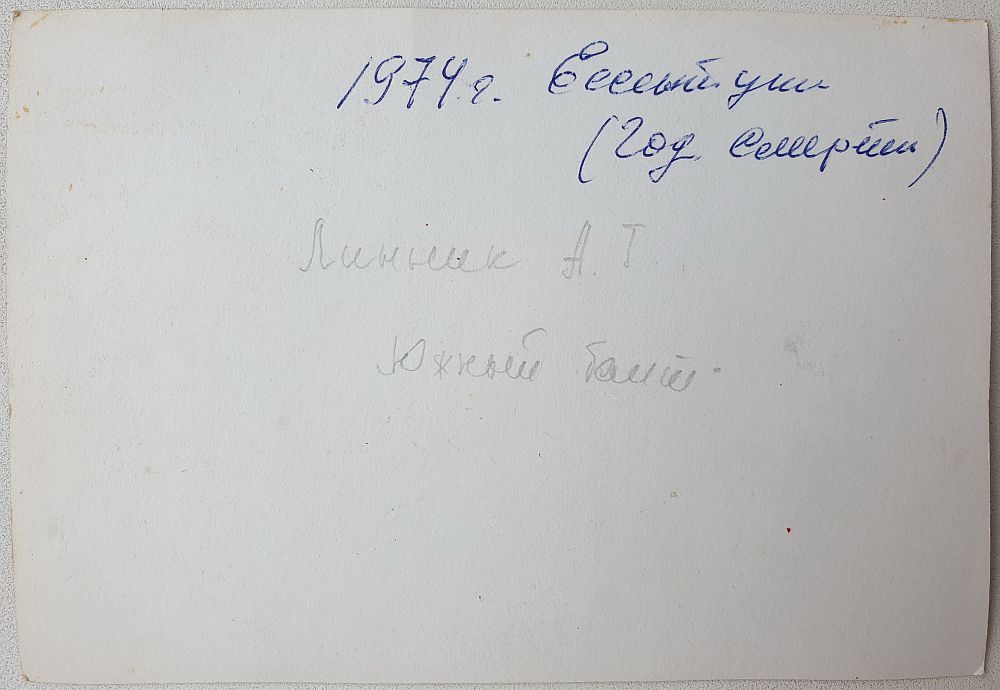 1974 г. Ессентуки
(Год смерти)
Линник А. Т.
Южный